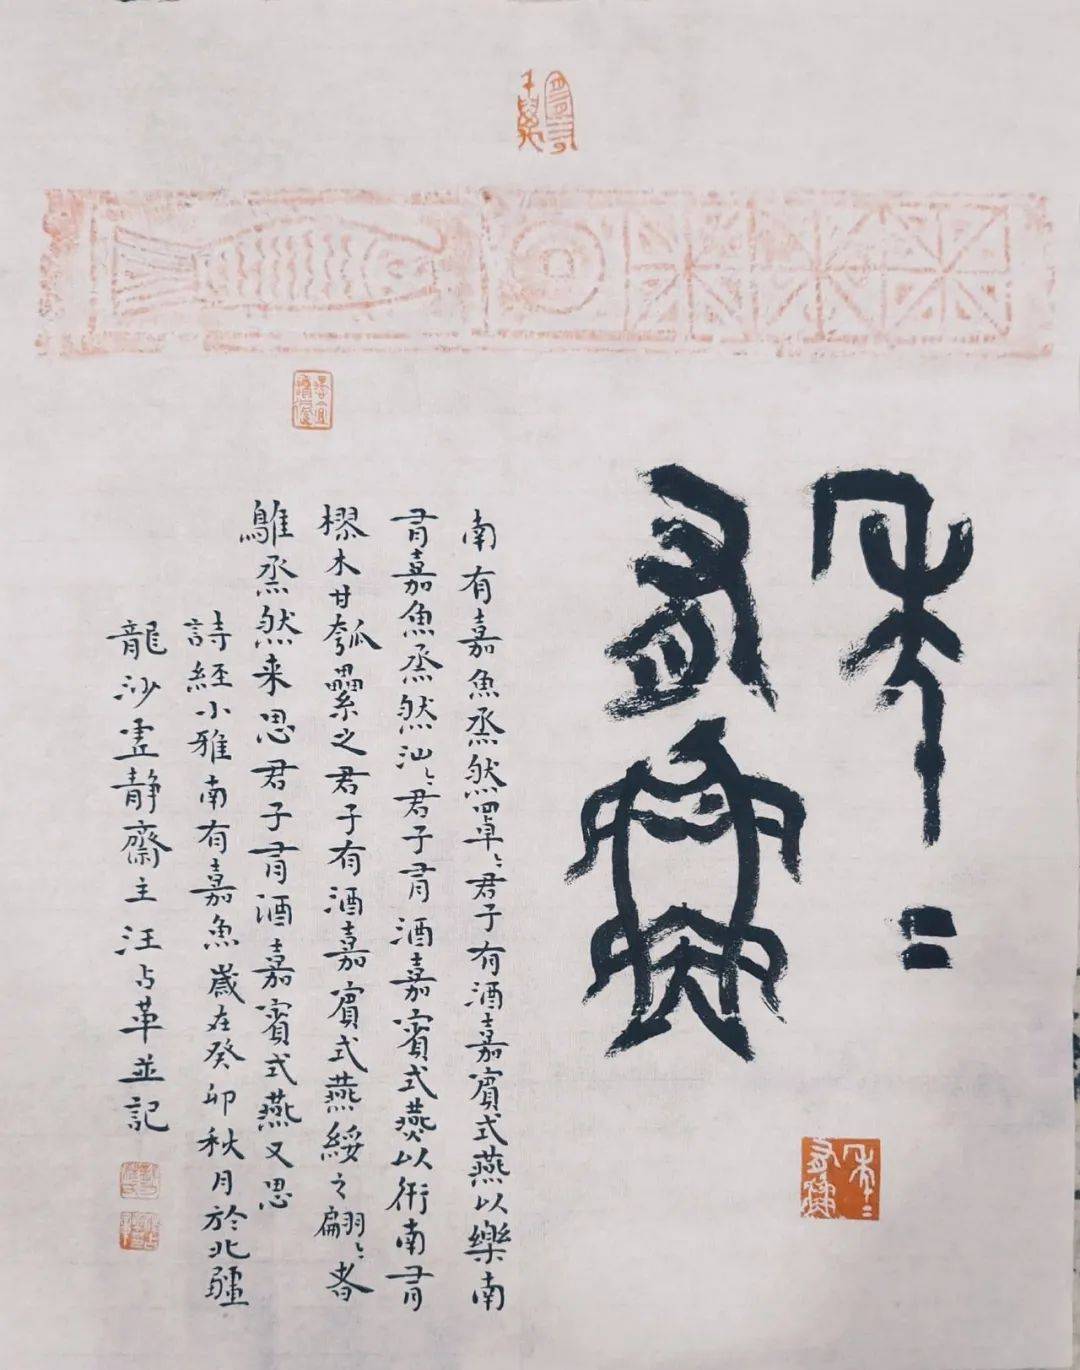 年〻
有魚
南有嘉魚烝然罩〻君子有酒嘉賓式燕以樂南
有嘉魚烝然汕〻君子有酒嘉賓式燕以衎南有
樛木甘瓠纍之君子有酒嘉賓式燕綏之翩〻者
鵻烝然来思君子有酒嘉賓式燕又思
詩經小雅南有嘉魚歲在癸卯秋月於北疆
龍沙虛靜齋主汪占革並記